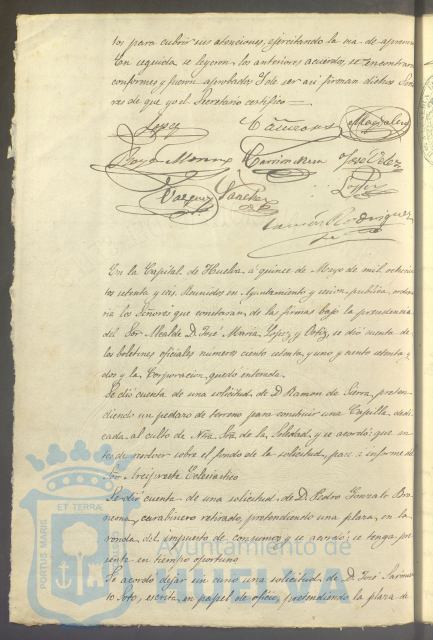 tos para cubrir sus atenciones, ejercitando la via de apremio
En seguida se leyeron los anteriores acuerdos, se encontraron
conformes y fueron aprobados. Y de ser asi firman dichos Seño
res de que yo el Secretario certifico =
Lopez
Magdalena
Rayo Moreno
Carrion Mera
José Velez
Vazquez
Sanchez
Ramón Rodriguez
En la Capital de Huelva á quince de Mayo de mil ochocien
tos setenta y seis. Reunidos en Ayuntamiento y sesion publica ordina
ria los Señores que constaran de las firmas bajo la presidencia
del Sor Alcalde D. José Maria Lopez y Ortiz, se dió cuenta de
los boletines oficiales numeros ciento setenta y uno y ciento setenta y
dos y la Corporacion quedó enterada.
Se dió cuenta de una solicitud de D. Ramon de Sierra, preten
diendo un pedazo de terreno para construir una Capilla dedi
cada al culto de Ntra. Sra. de la Soledad, y se acordó que an
tes de resolver sobre el fondo de la solicitud, pase á informe del
Sor Arcipreste Eclesiastico
Se dió cuenta de una solicitud de D. Pedro Gonzalo
carabinero retirado, pretendiendo una plaza en la
ronda del impuesto de consumos y se acordó se tenga pre
sente en tiempo oportuno
Se acordó dejar sin curso una solicitud de D. José Sarmien
to Soto, escrita en papel de oficio, pretendiendo la plaza de
ET TERRÆ
PORTUS MARIS
Ayuntamiento de
HUELVA